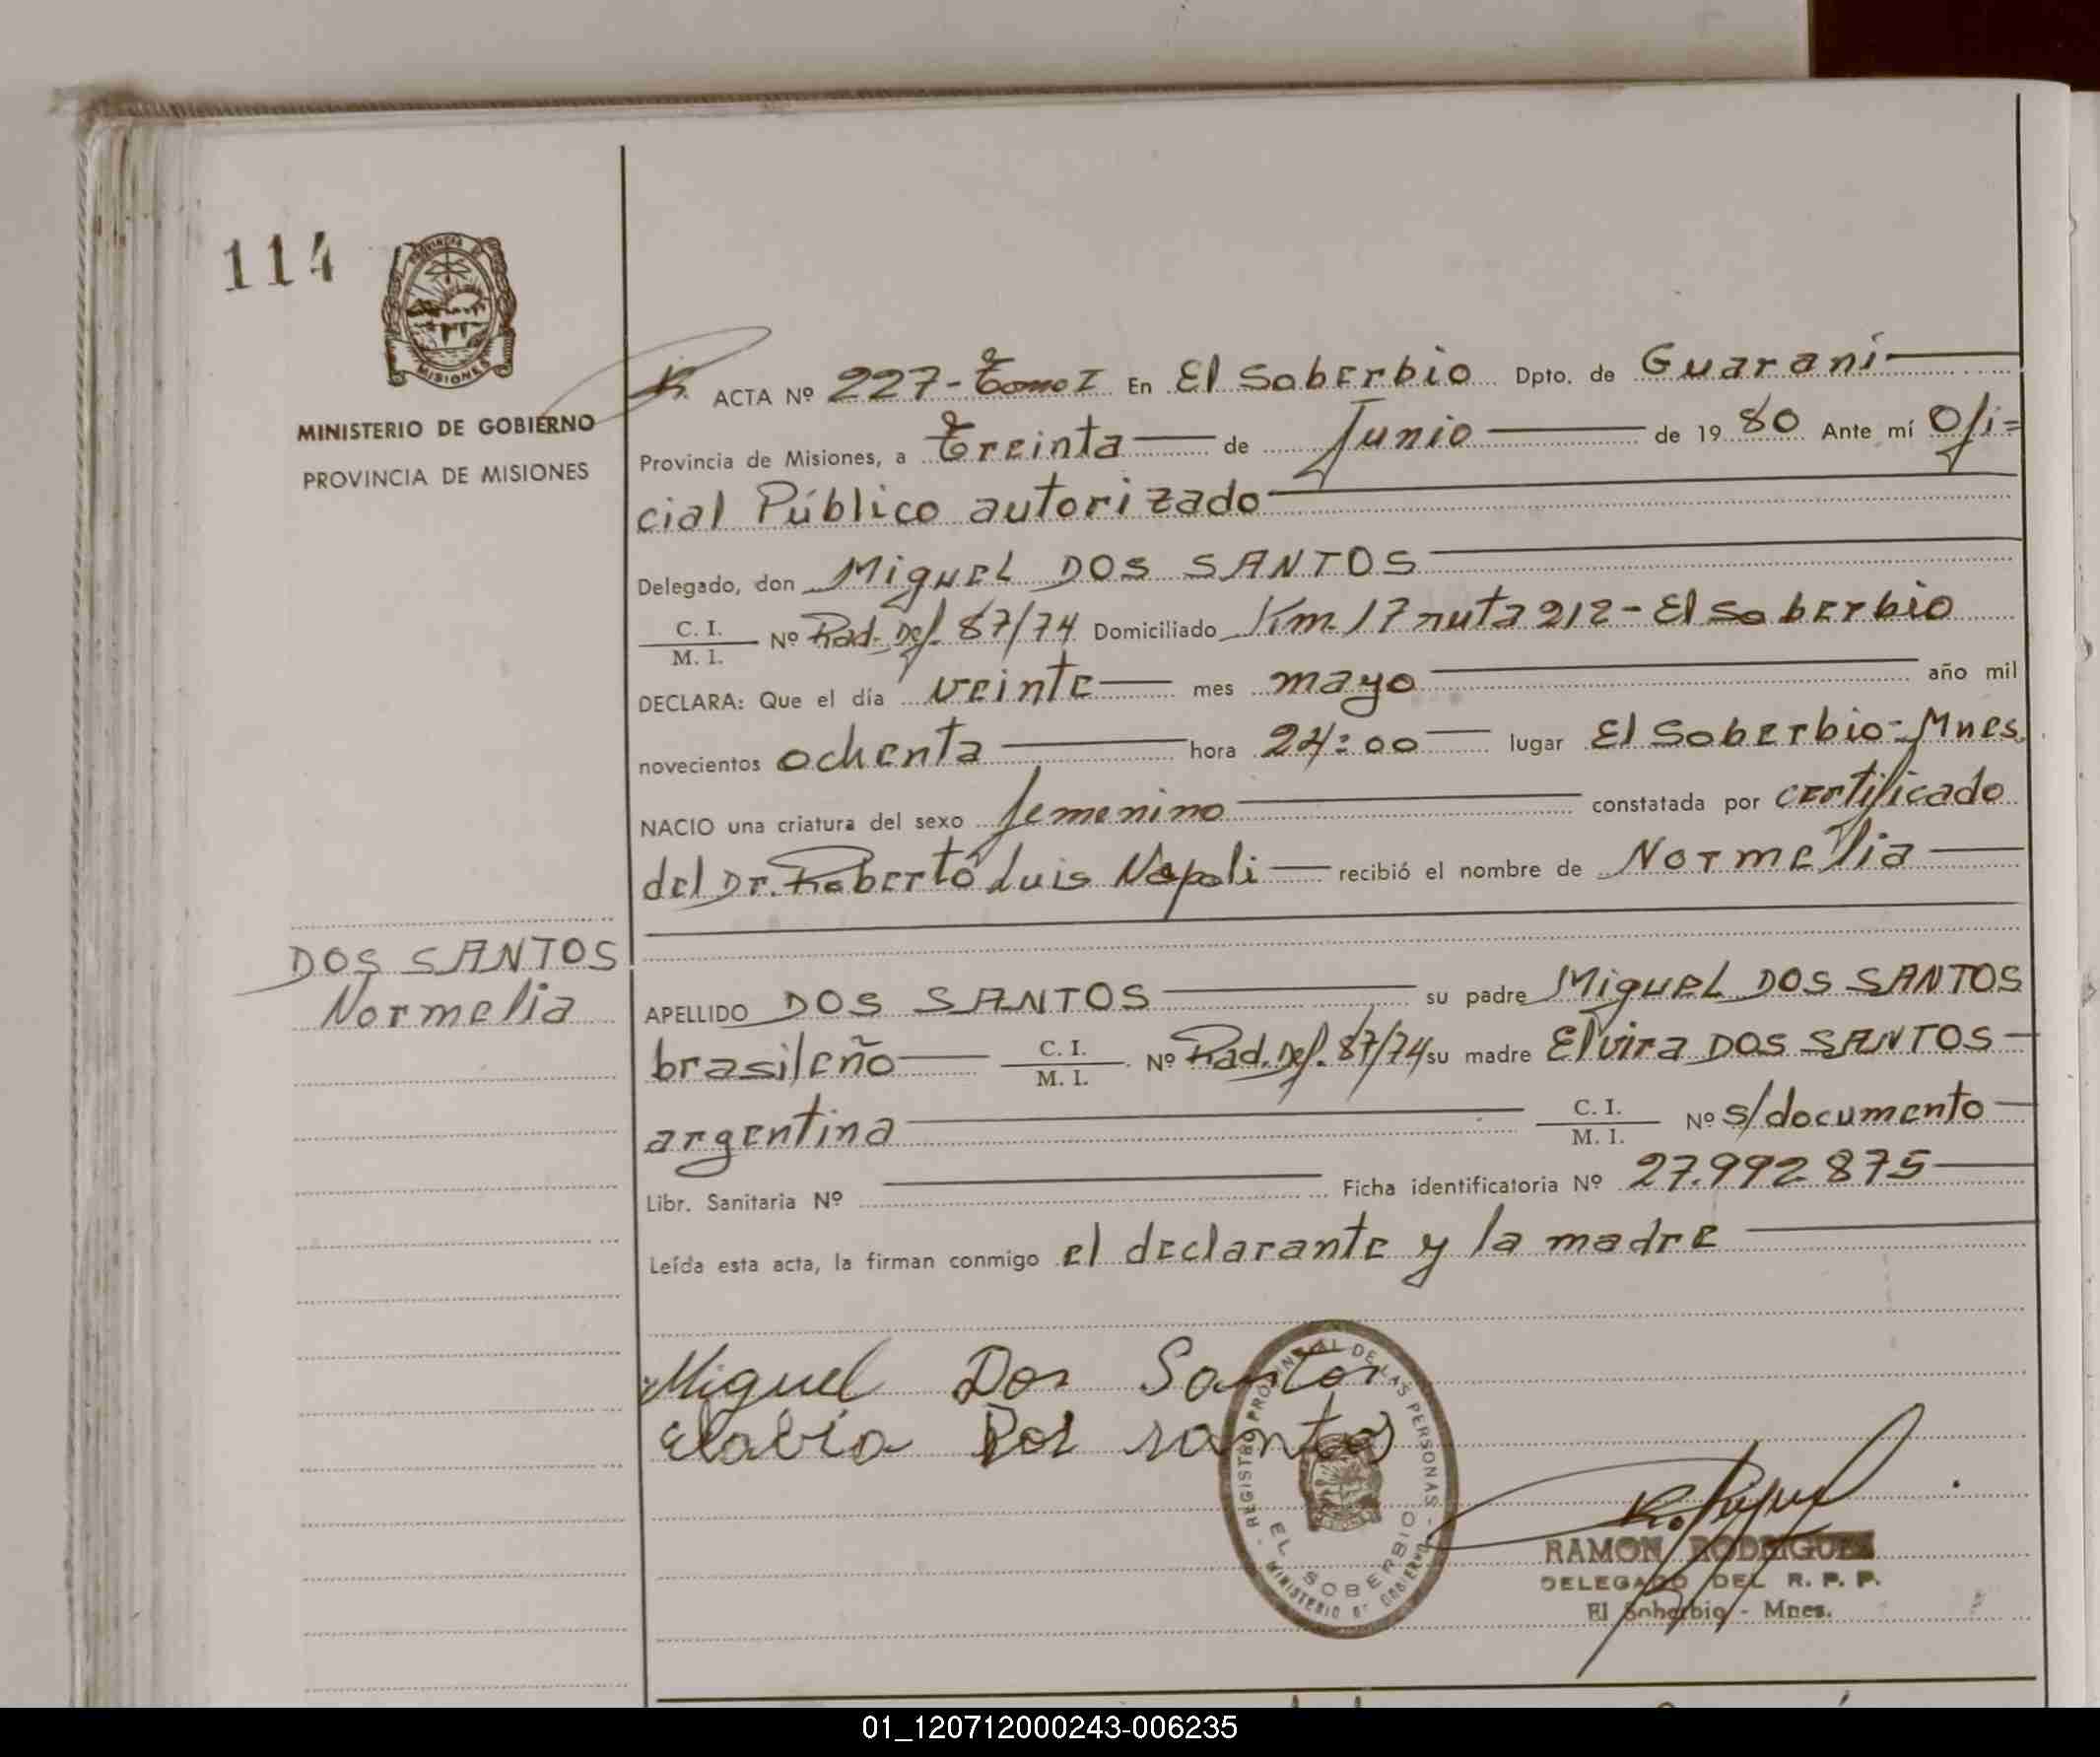 114
MISIONES
MINISTERIO DE GOBIERNO
PROVINCIA DE MISIONES
ACTA Nº 227-Tomo I En El Soberbio Dpto. de Guaraní
Provincia de Misiones, a Treinta de Junio de 1980 Ante mí Ofi=
cial Público autorizado
Delegado, don Miguel DOS SANTOS
C. I.
M. I. Nº Rad. Def. 87/74 Domiciliado Km. 17 ruta 212-El Soberbio
DECLARA: Que el día veinte mes mayo año mil
novecientos ochenta hora 24:00 lugar El Soberbio-Mnes.
NACIO una criatura del sexo femenino constatada por certificado
del Dr. Roberto Luis Napoli recibió el nombre de Normelia
DOS SANTOS
Normelia
APELLIDO DOS SANTOS su padre Miguel DOS SANTOS
brasileño C. I.
M. I. Nº Rad. Def. 87/74 su madre Elvira DOS SANTOS
argentina C. I.
M. I. Nº s/documento
Libr. Sanitaria Nº Ficha identificatoria Nº 27.992.875
Leída esta acta, la firman conmigo el declarante y la madre
Miguel Dos Santos
Dos santos
REGISTRO PROVINCIAL DE LAS PERSONAS - MINISTERIO DE GOBIERNO -
EL SOBERBIO
RAMON RODRIGUEZ
DELEGADO DEL R. P. P.
El Soberbio - Mnes.
01_120712000243-006235